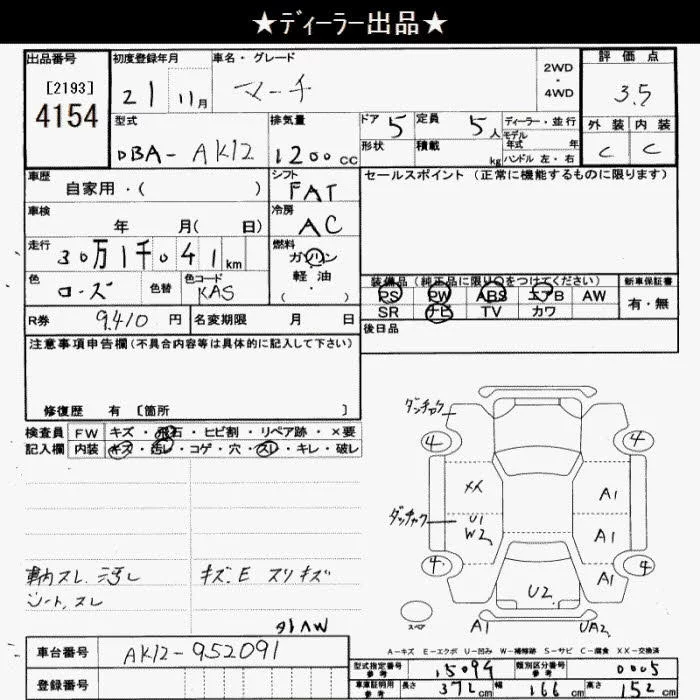 ★ディーラー出品★
出品番号
[2193]
4154
初度登録年月
21 11月
車名・グレード
マーチ
2WD
・
4WD
評価点
3.5
外装 内装
C C
型式
DBA-AK12
排気量
1200cc
ドア 5
定員 5人
形状
積載 kg
ディーラー・並行
モデル年式 年
ハンドル 左・右
車歴
自家用・( )
シフト
FAT
セールスポイント(正常に機能するものに限ります)
車検
年 月( 日)
冷房
AC
走行
30万1千041km
燃料
ガソリン
軽油
( ・ )
色
ローズ
色替
色コード
KAS
装備品(純正品に限り○をつけてください)
PS PW ABS エアB AW
SR ナビ TV カワ
新車保証書
有・無
R券 9,410円
名変期限 月 日
後日品
注意事項申告欄(不具合内容等は具体的に記入して下さい)
修復歴 有 [箇所 ]
検査員
記入欄
FW キズ・飛石・ヒビ割・リペア跡・×要
内装 キズ・汚レ・コゲ・穴・スレ・キレ・破レ
ダッチャク
4 4
XX A1
ダッチャク
U1
W2 A1
4 4
A1
U2
スペア
A1 UA2
車内スレ.汚レ
シート.スレ
キズ.E スリキズ
A-キズ E-エクボ U-凹み W-補修跡 S-サビ C-腐食 XX-交換済
車台番号 AK12-952091
登録番号
型式指定番号
参考
15094
類別区分番号
参考
0005
車庫証明用
参考
長さ 372cm
幅 166cm
高さ 152cm